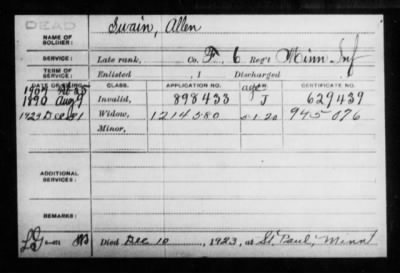 DEAD
NAME OF SOLDIER: Swain, Allen
SERVICE: Late rank, Co. F, 6 Reg't Minn Inf
TERM OF SERVICE: Enlisted , 1 Discharged
DATE OF FILING. CLASS. APPLICATION NO. LAW. CERTIFICATE NO.
1907
1890 Aug 9 Invalid, 898433 J 629439
1923 Dec 21 Widow, 1214580 5-1-20 945076
Minor,
ADDITIONAL SERVICES:
REMARKS:
Died Dec 10, 1923, at St. Paul, Minn